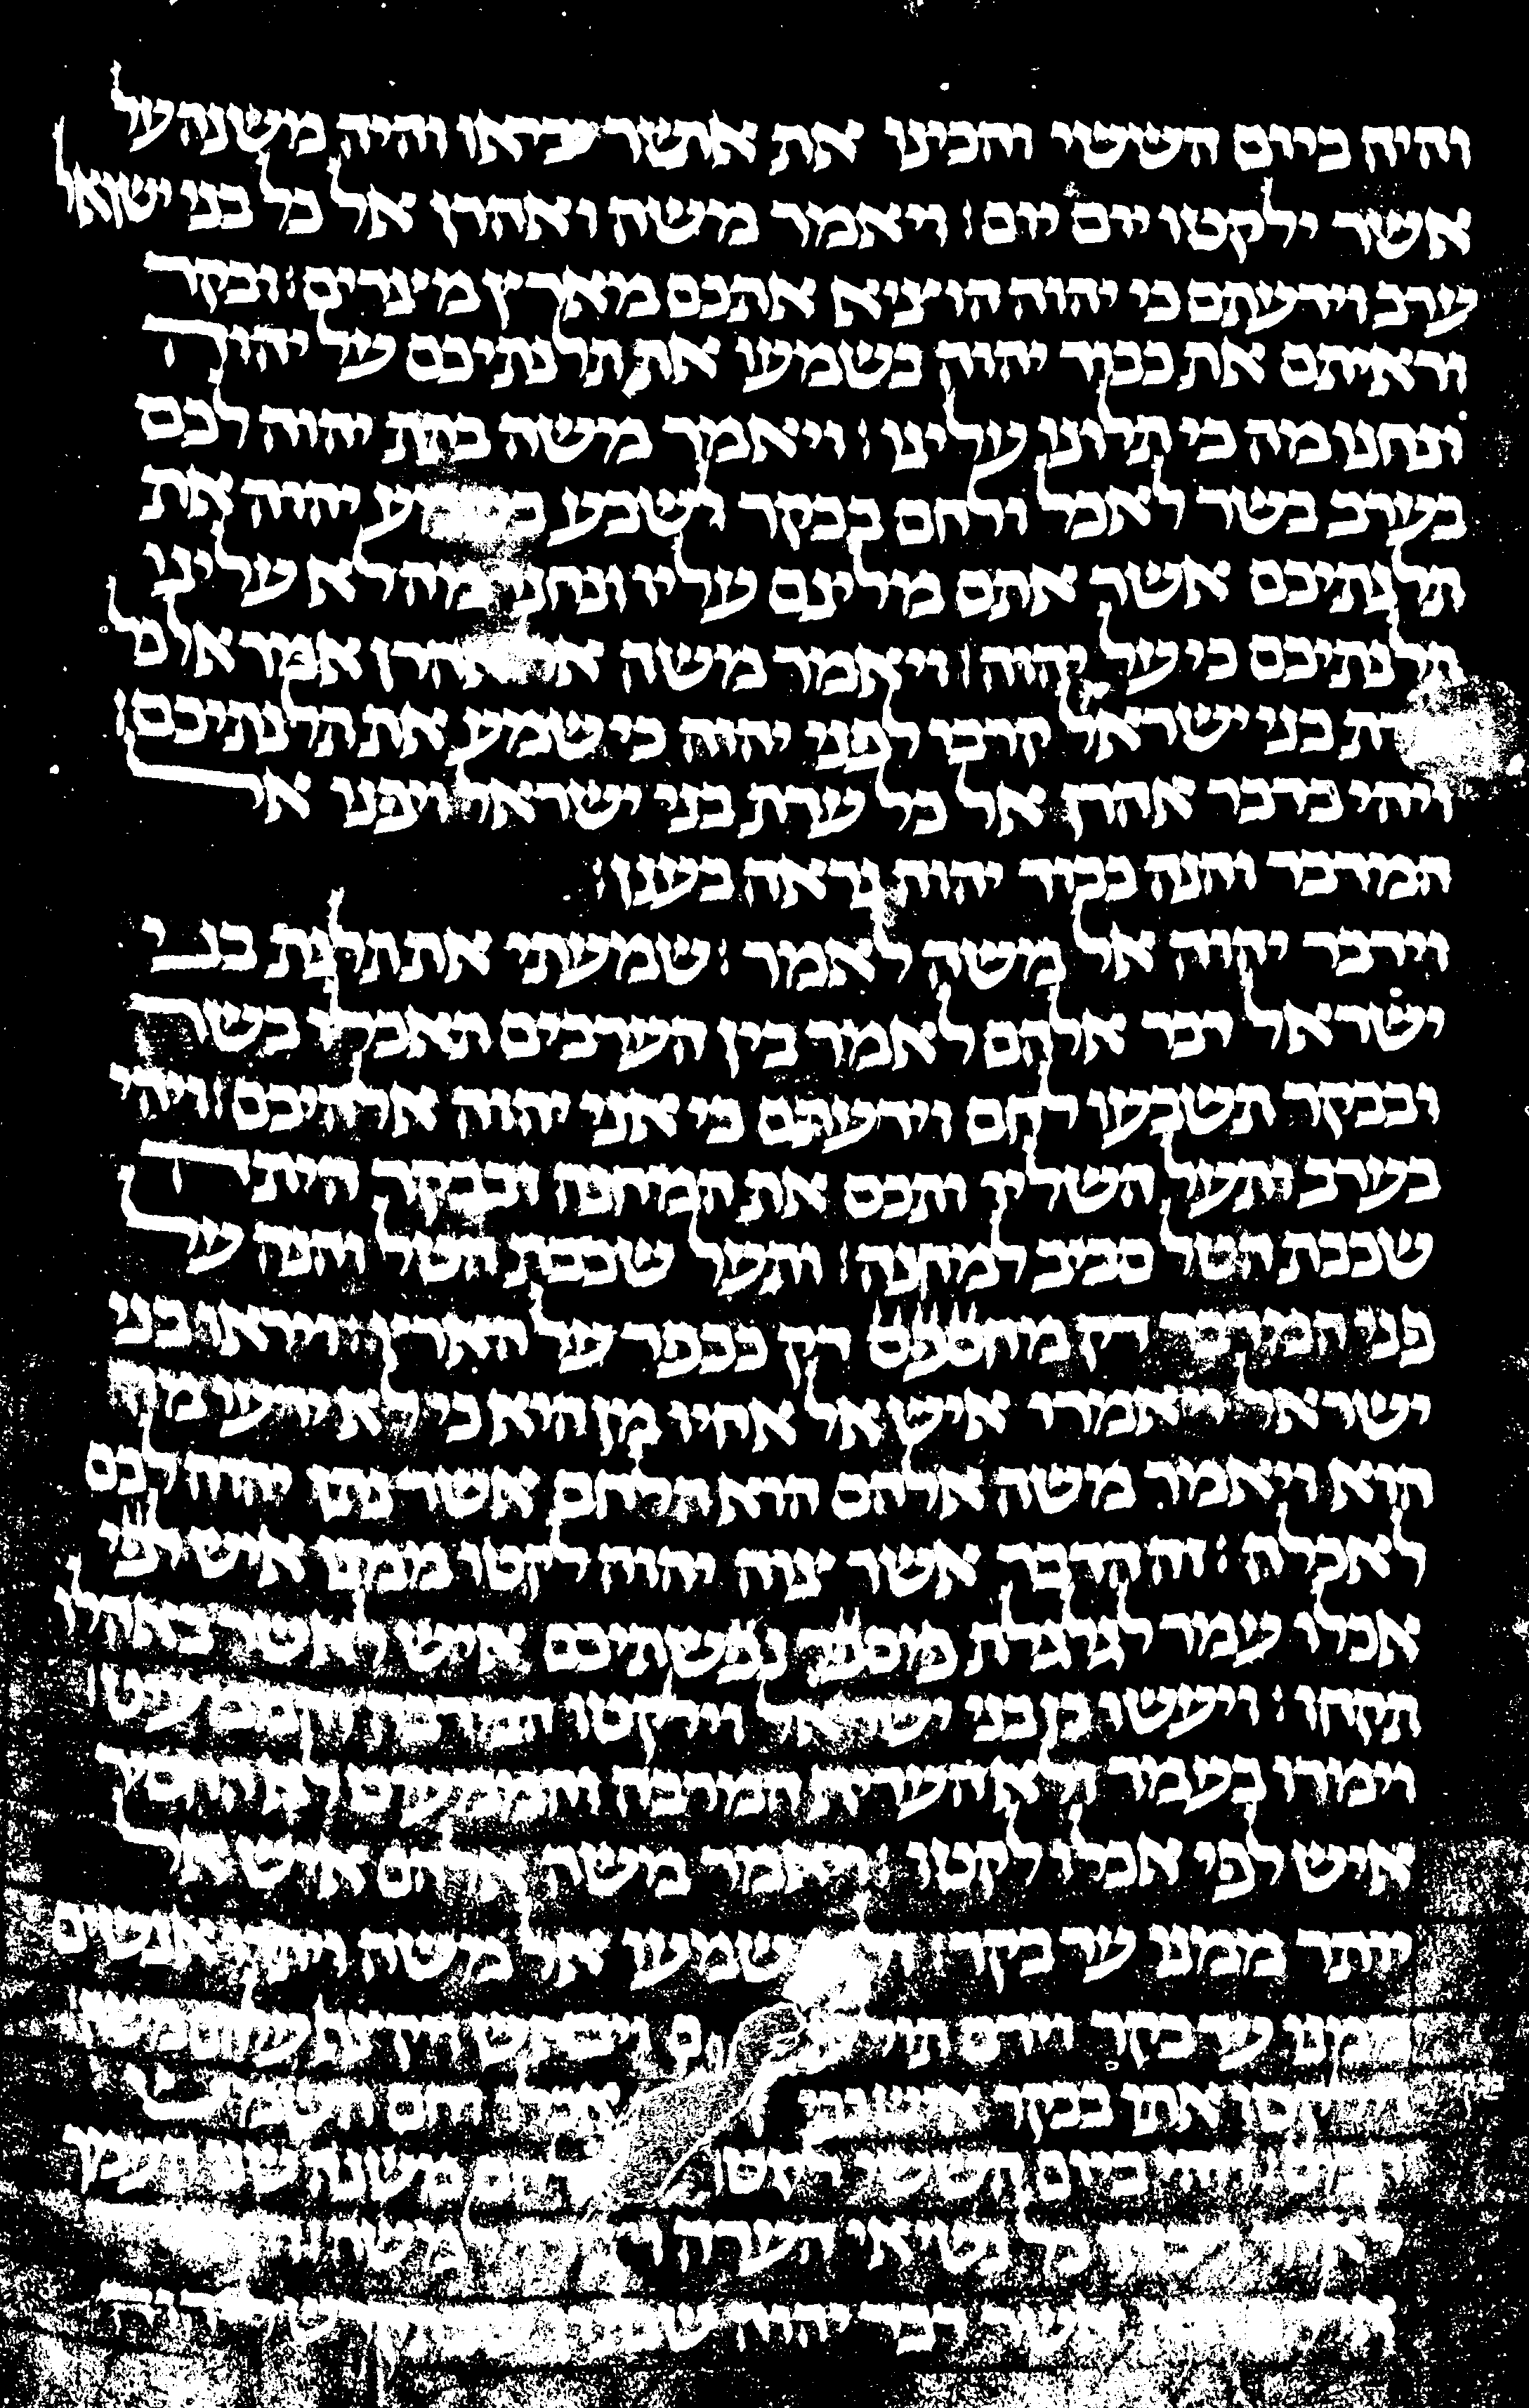 והיה ביום הששי והכינו את אשר יביאו והיה משנה על
אשר ילקטו יום יום׃ ויאמר משה ואהרן אל כל בני ישראל
ערב וידעתם כי יהוה הוציא אתכם מארץ מצרים׃ ובקר
וראיתם את כבוד יהוה בשמעו את תלנתיכם על יהוה
ונחנו מה כי תלונו עלינו׃ ויאמר משה בתת יהוה לכם
בערב בשר לאכל ולחם בבקר לשבע בשמע יהוה את
תלנתיכם אשר אתם מלינם עליו ונחנו מה לא עלינו
תלנתיכם כי על יהוה׃ ויאמר משה אל אהרן אמר אל כל
עדת בני ישראל קרבו לפני יהוה כי שמע את תלנתיכם׃
ויהי כדבר אהרן אל כל עדת בני ישראל ויפנו אל
המדבר והנה כבוד יהוה נראה בענן׃
וידבר יהוה אל משה לאמר׃ שמעתי את תלנת בני
ישראל דבר אלהם לאמר בין הערבים תאכלו בשר
ובבקר תשבעו לחם וידעתם כי אני יהוה אלהיכם׃ ויהי
בערב ותעל השלין ותכס את המחנה ובבקר היתה
שכבת הטל סביב למחנה׃ ותעל שכבת הטל והנה על
פני המדבר דק מחספס דק ככפר על הארץ׃ ויראו בני
ישראל ויאמרו איש אל אחיו מן הוא כי לא ידעו מה
הוא ויאמר משה אלהם הוא הלחם אשר נתן יהוה לכם
לאכלה׃ זה הדבר אשר צוה יהוה לקטו ממנו איש לפי
אכלו עמר לגלגלת מספר נפשתיכם איש לאשר באהלו
תקחו׃ ויעשו כן בני ישראל וילקטו המרבה והממעיט׃
וימדו בעמר ולא העדיף המרבה והממעיט לא החסיר
איש לפי אכלו לקטו׃ ויאמר משה אלהם איש אל
יותר ממנו עד בקר׃ ולא שמעו אל משה ויותרו אנשים
ממנו עד בקר וירם תולעים ויבאש ויקצף עלהם משה׃
וילקטו אתו בבקר בבקר איש כפי אכלו וחם השמש
ונמס׃ ויהי ביום הששי לקטו לחם משנה שני העמר
לאחד ויבאו כל נשיאי העדה ויגידו למשה׃
אלהם הוא אשר דבר יהוה שבתון שבת קדש ליהוה